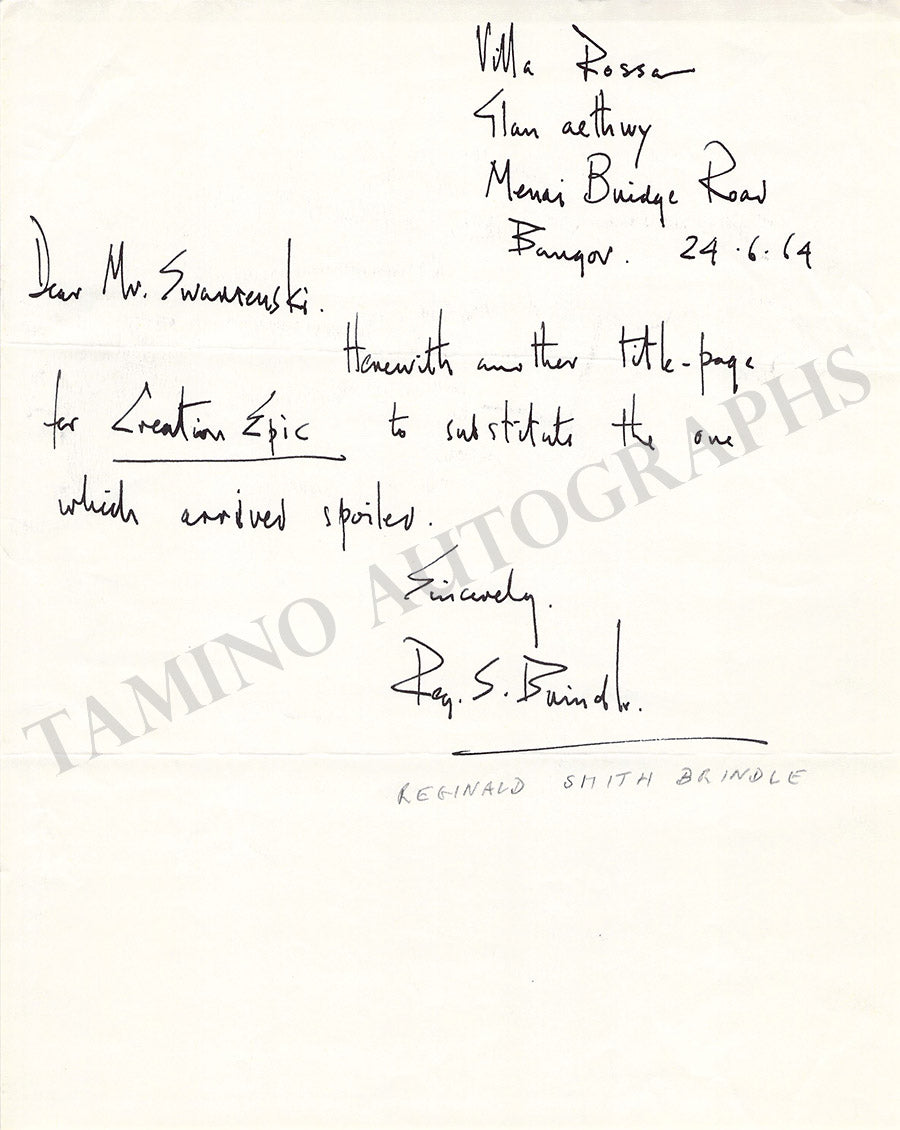 Villa Rossa
Glan aethwy
Menai Bridge Road
Bangor. 24.6.64
Dear Mr. Swarsenski.
Herewith another title-page
for Creation Epic to substitute the one
which arrived spoiled.
Sincerely.
Reg. S. Brindle.
REGINALD SMITH BRINDLE
TAMINO AUTOGRAPHS